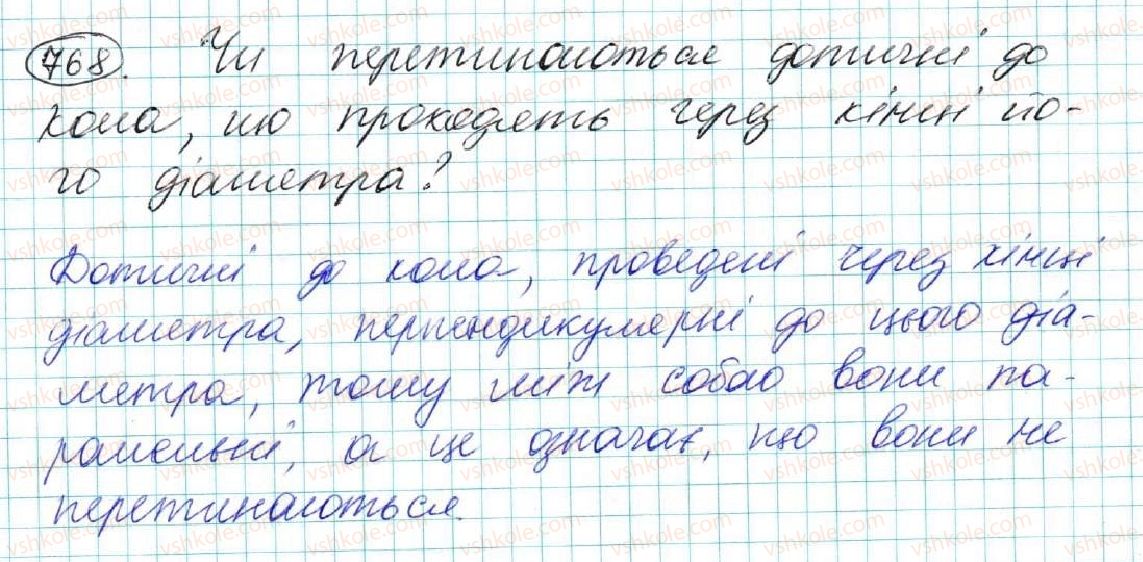 768. Чи перетинаються дотичні до
кола, що проходять через кінці йо-
го діаметра?
Дотичні до кола, проведені через кінці
діаметра, перпендикулярні до цього діа-
метра, тому між собою вони па-
ралельні, а це означає, що вони не
перетинаються.